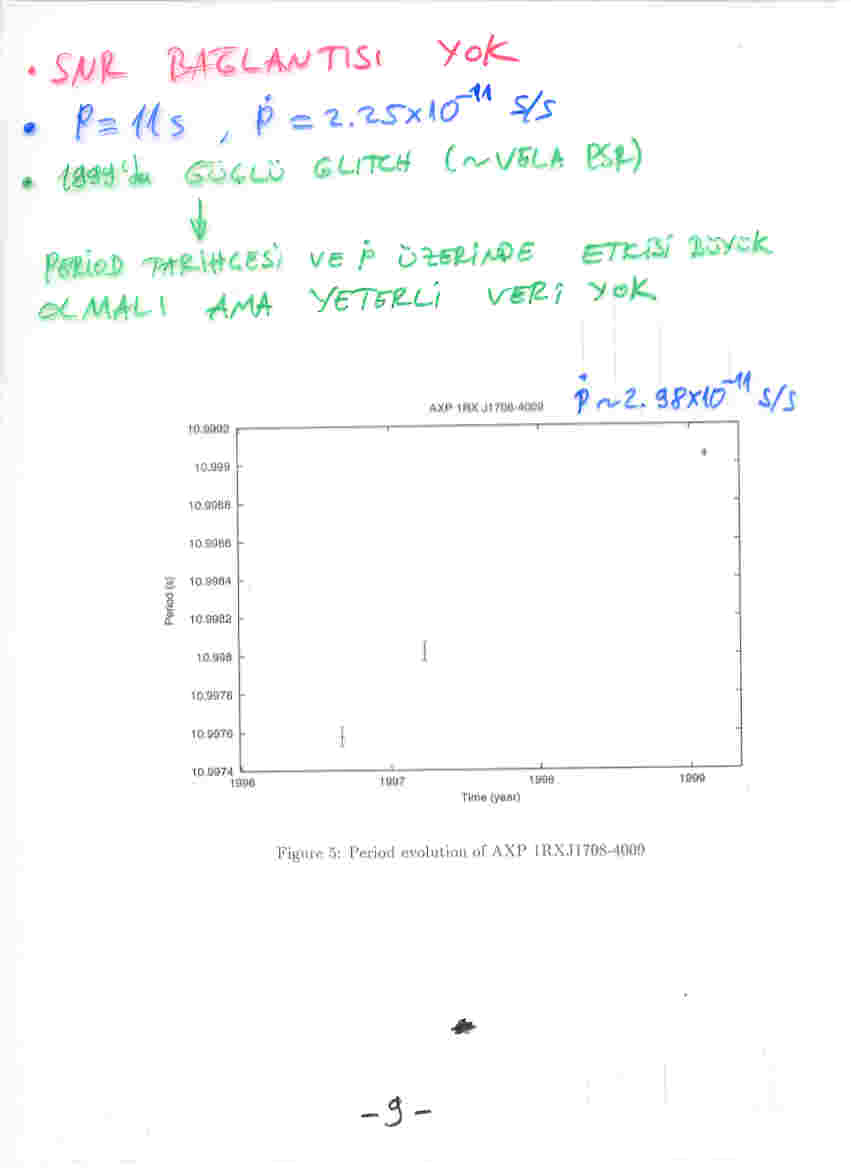 • SNR BAĞLANTISI YOK
• P ≅ 11 s , Ṗ = 2.25×10⁻¹¹ s/s
• 1999'da GÜÇLÜ GLITCH (~VELA PSR)
↓
PERİOD TARİHÇESİ VE Ṗ ÜZERİNDE ETKİSİ BÜYÜK
OLMALI AMA YETERLİ VERİ YOK
Ṗ ~ 2.98×10⁻¹¹ s/s
AXP 1RX J1708-4009
10.9992
10.999
10.9988
10.9986
10.9984
10.9982
10.998
10.9978
10.9976
10.9974
Period (s)
1996 1997 1998 1999
Time (year)
Figure 5: Period evolution of AXP 1RXJ1708-4009
- 9 -